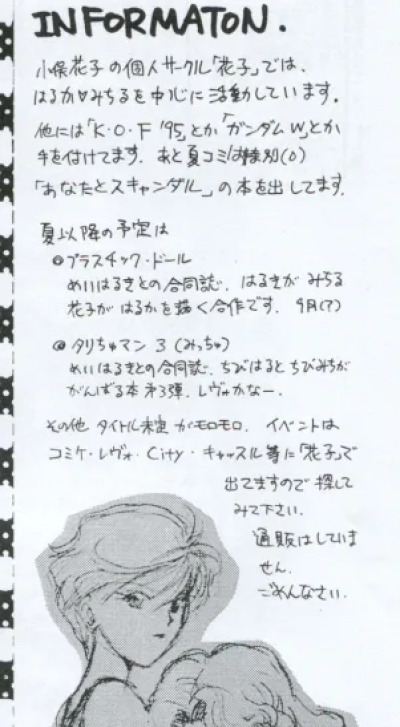 INFORMATON.
小俣花子の個人サークル「花子」では、
はるか♡みちるを中心に活動しています。
他には「K・O・F '95」とか「ガンダムW」とか
手を付けてます。あと夏コミは特別(o)
「あなたとスキャンダル」の本を出してます。
夏以降の予定は
プラスチック・ドール
めいはるきとの合同誌。はるきがみちる
花子がはるかを描く合作です。9月(?)
タリちゅマン 3 (みっちゅ)
めいはるきとの合同誌。ちびはるとちびみちが
がんばる本 第3弾。レヴォかなー。
その他 タイトル未定がモロモロ。イベントは
コミケ・レヴォ・City・キャッスル等に「花子」で
出てますので探して
みて下さい。
通販はしていま
せん。
ごめんなさい。